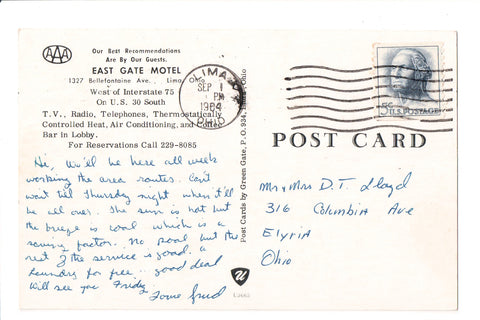 AAA
Our Best Recommendations
Are By Our Guests.
EAST GATE MOTEL
1327 Bellefontaine Ave., Lima, Ohio
West of Interstate 75
On U.S. 30 South
T.V., Radio, Telephones, Thermostatically
Controlled Heat, Air Conditioning, and Coffee
Bar in Lobby.
For Reservations Call 229-8085
Hi, We'll be here all week
working the area routes. Can't
wait till Thursday night when it'll
be all over. The sun is hot but
the breeze is cool which is a
saving factor. No pool but the
rest of the service is good.
Laundry for free.. good deal
Will see you Friday
Love
Post Cards by Green Gate, P.O. 934, Ohio
LIMA
SEP 1
PM
1964
OHIO
5c U.S. POSTAGE
POST CARD
Mr & Mrs D. T. Lloyd
316 Columbia Ave
Elyria
Ohio